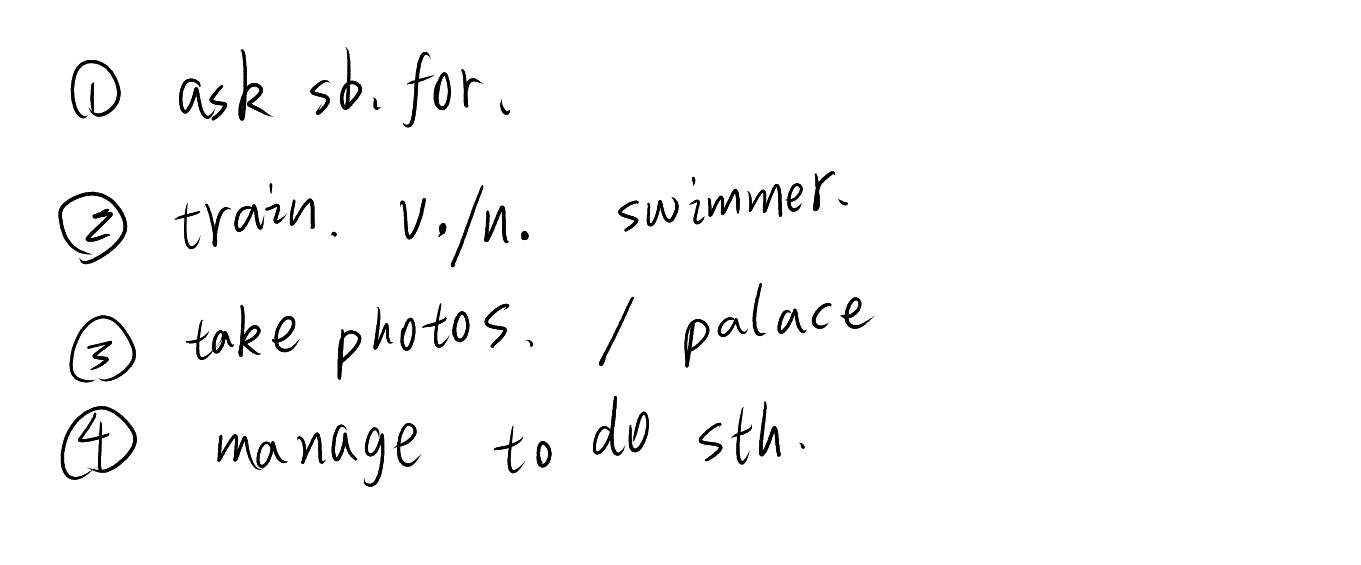 ① ask sb. for.
② train. v./n. swimmer.
③ take photos. / palace
④ manage to do sth.